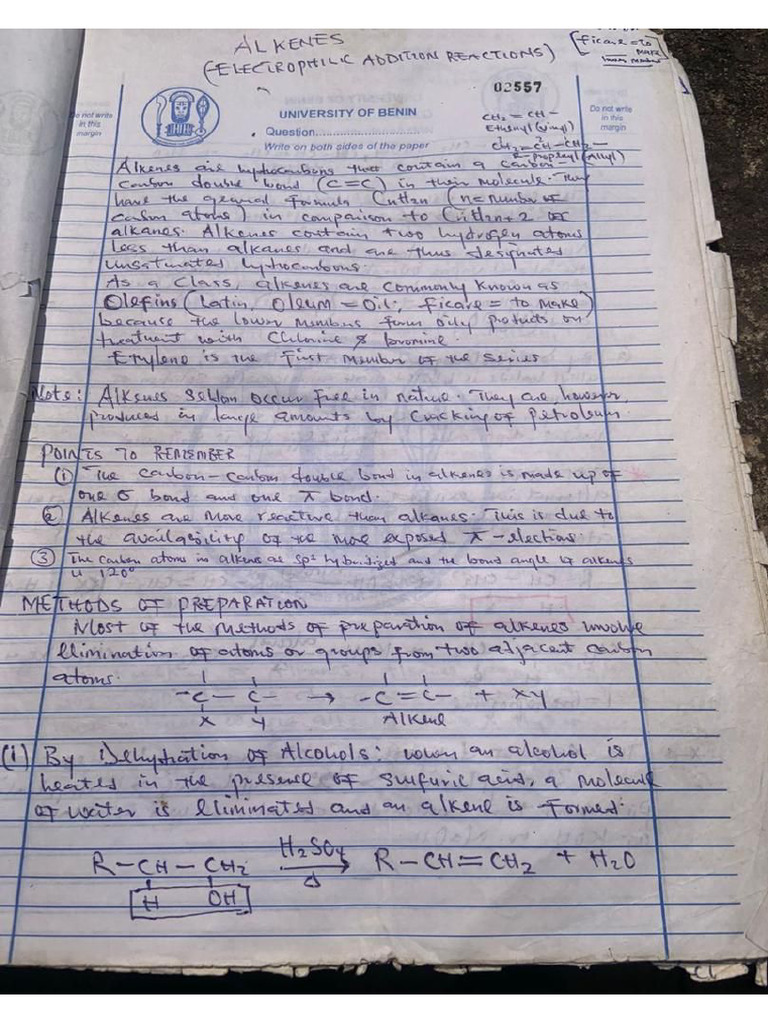 ALKENES
(ELECTROPHILIC ADDITION REACTIONS)
[ficare = to
make
02557
UNIVERSITY OF BENIN
Question
Write on both sides of the paper
Do not write
in this
margin
Do not write
in this
margin
CH2 = CH -
Ethenyl (vinyl)
CH2 = CH - CH2 -
2-propenyl (Allyl)
Alkenes are hydrocarbons that contain a Carbon-
Carbon double bond (C=C) in their molecule. They
have the general formula CnH2n (n = number of
carbon atoms) in comparison to CnH2n+2 for
alkanes. Alkenes contain two hydrogen atoms
less than alkanes and are thus designated
unsaturated hydrocarbons.
As a Class, alkenes are commonly known as
Olefins (Latin, Oleum = Oil; ficare = to make)
because the lower members form oily products on
treatment with Chlorine & bromine.
Ethylene is the First Member of the series
Note: Alkenes seldon occur free in nature. They are, however
produced in large amounts by Cracking of Petroleum.
POINTS TO REMEMBER
(1) The carbon-carbon double bond in alkenes is made up of
one σ bond and one π bond.
(2) Alkenes are More reactive than alkanes. This is due to
the availability of the more exposed π-electrons.
(3) The Carbon atoms in alkene as sp² hybridized and the bond angle of alkenes
is 120°
METHODS OF PREPARATION
Most of the methods of preparation of alkenes involve
Elimination of atoms or groups from two adjacent carbon
atoms.
-C - C- → -C = C- + XY
X Y Alkene
(i) By Dehydration of Alcohols: When an alcohol is
heated in the presence of sulfuric acid, a molecule
of water is eliminated and an alkene is formed.
R-CH-CH2 H2SO4 R-CH=CH2 + H2O
H OH Δ